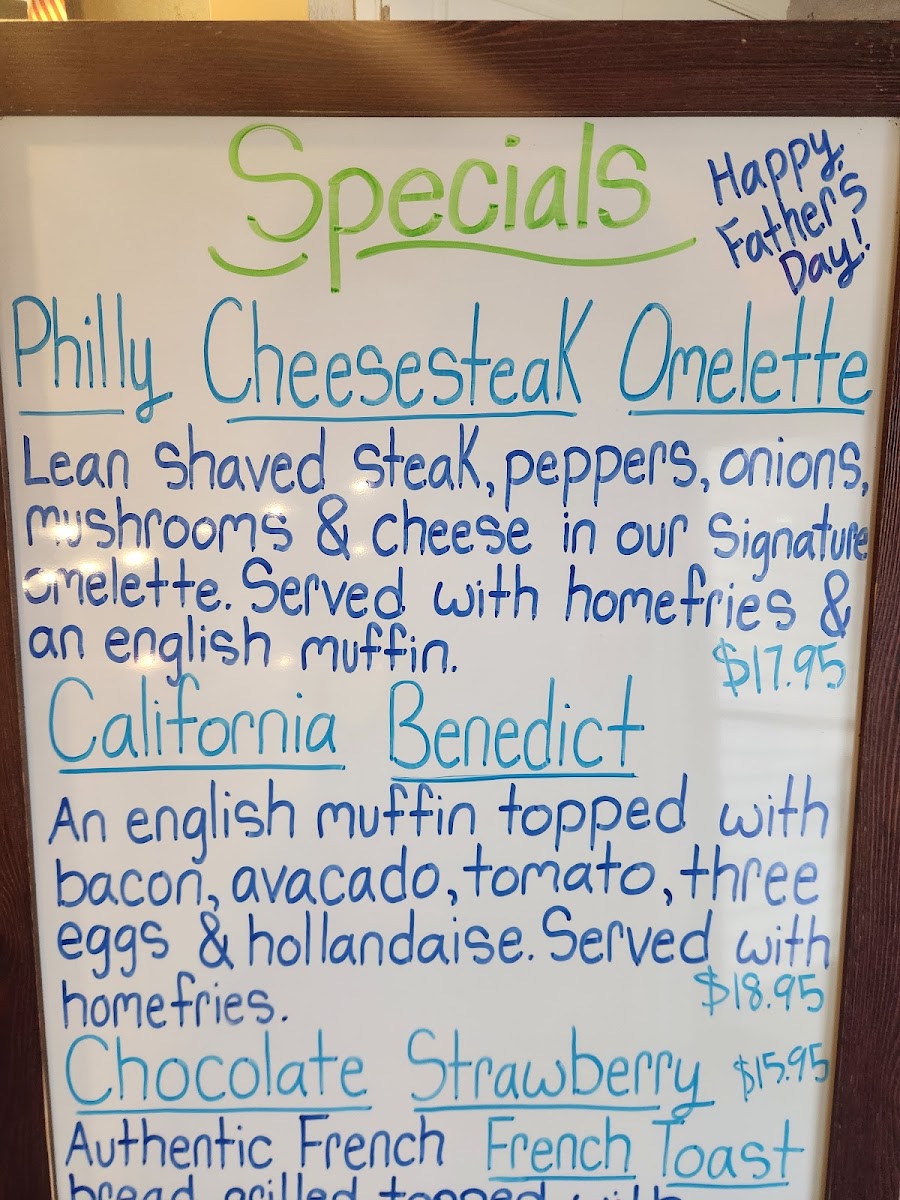 Specials
Happy
Father's
Day!
Philly Cheesesteak Omelette
Lean shaved steak, peppers, onions,
mushrooms & cheese in our Signature
omelette. Served with homefries &
an english muffin.
$17.95
California Benedict
An english muffin topped with
bacon, avacado, tomato, three
eggs & hollandaise. Served with
homefries.
$18.95
Chocolate Strawberry $15.95
French Toast
Authentic French
bread grilled topped with